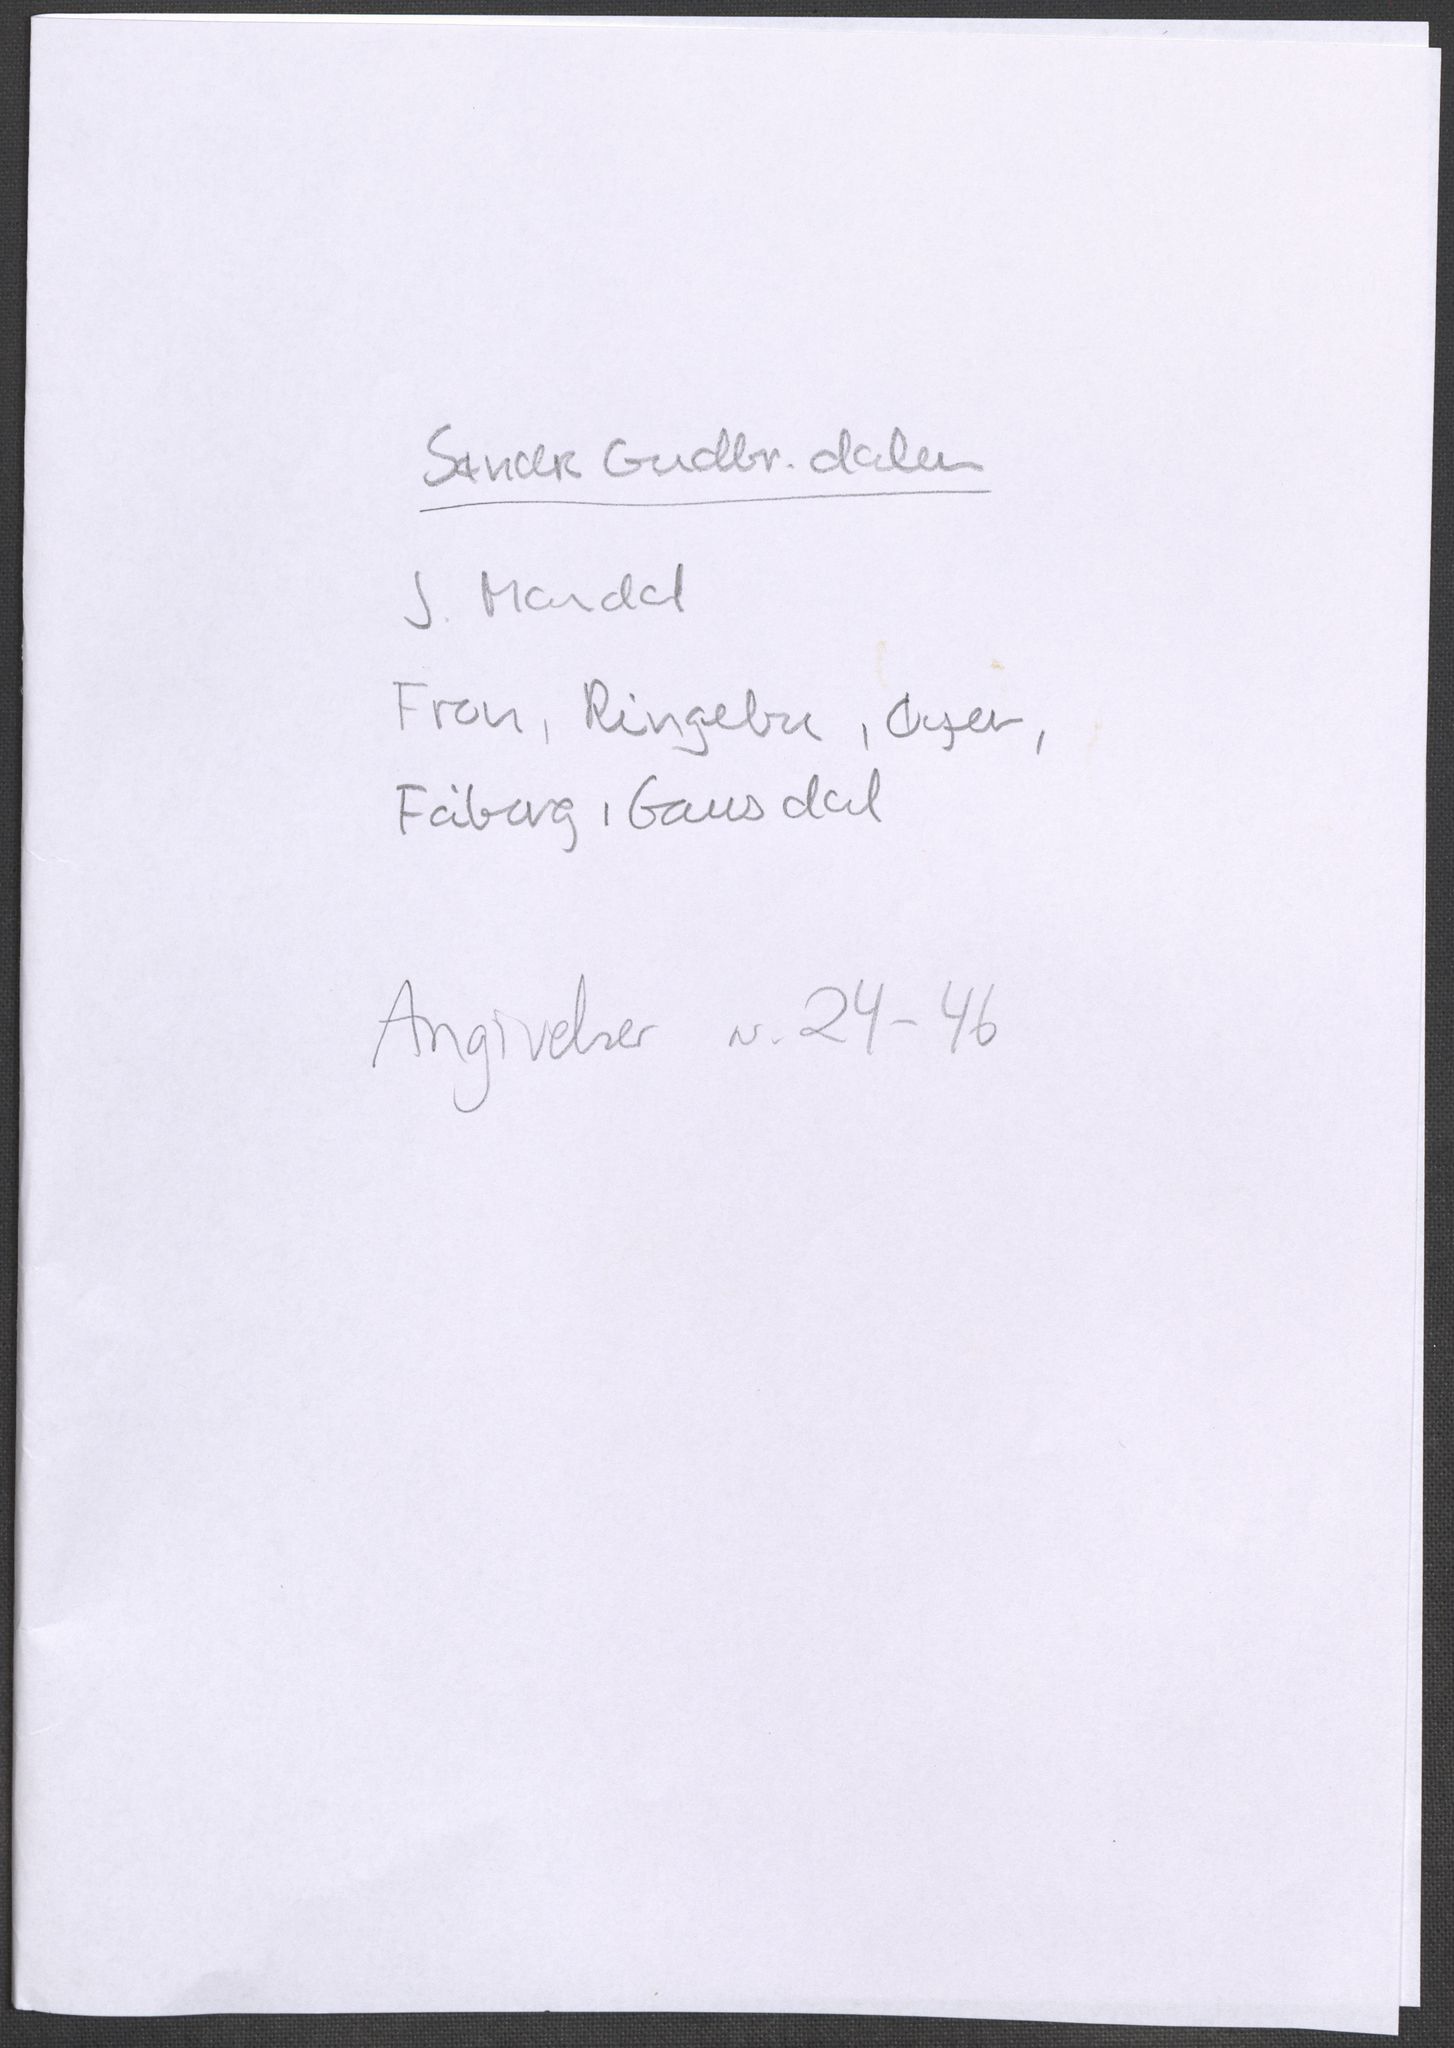 Søndre Gudbr.dalen
J. Mandal
Fron, Ringebu, Øyer,
Fåberg, Gausdal
Angivelser nr. 24-46